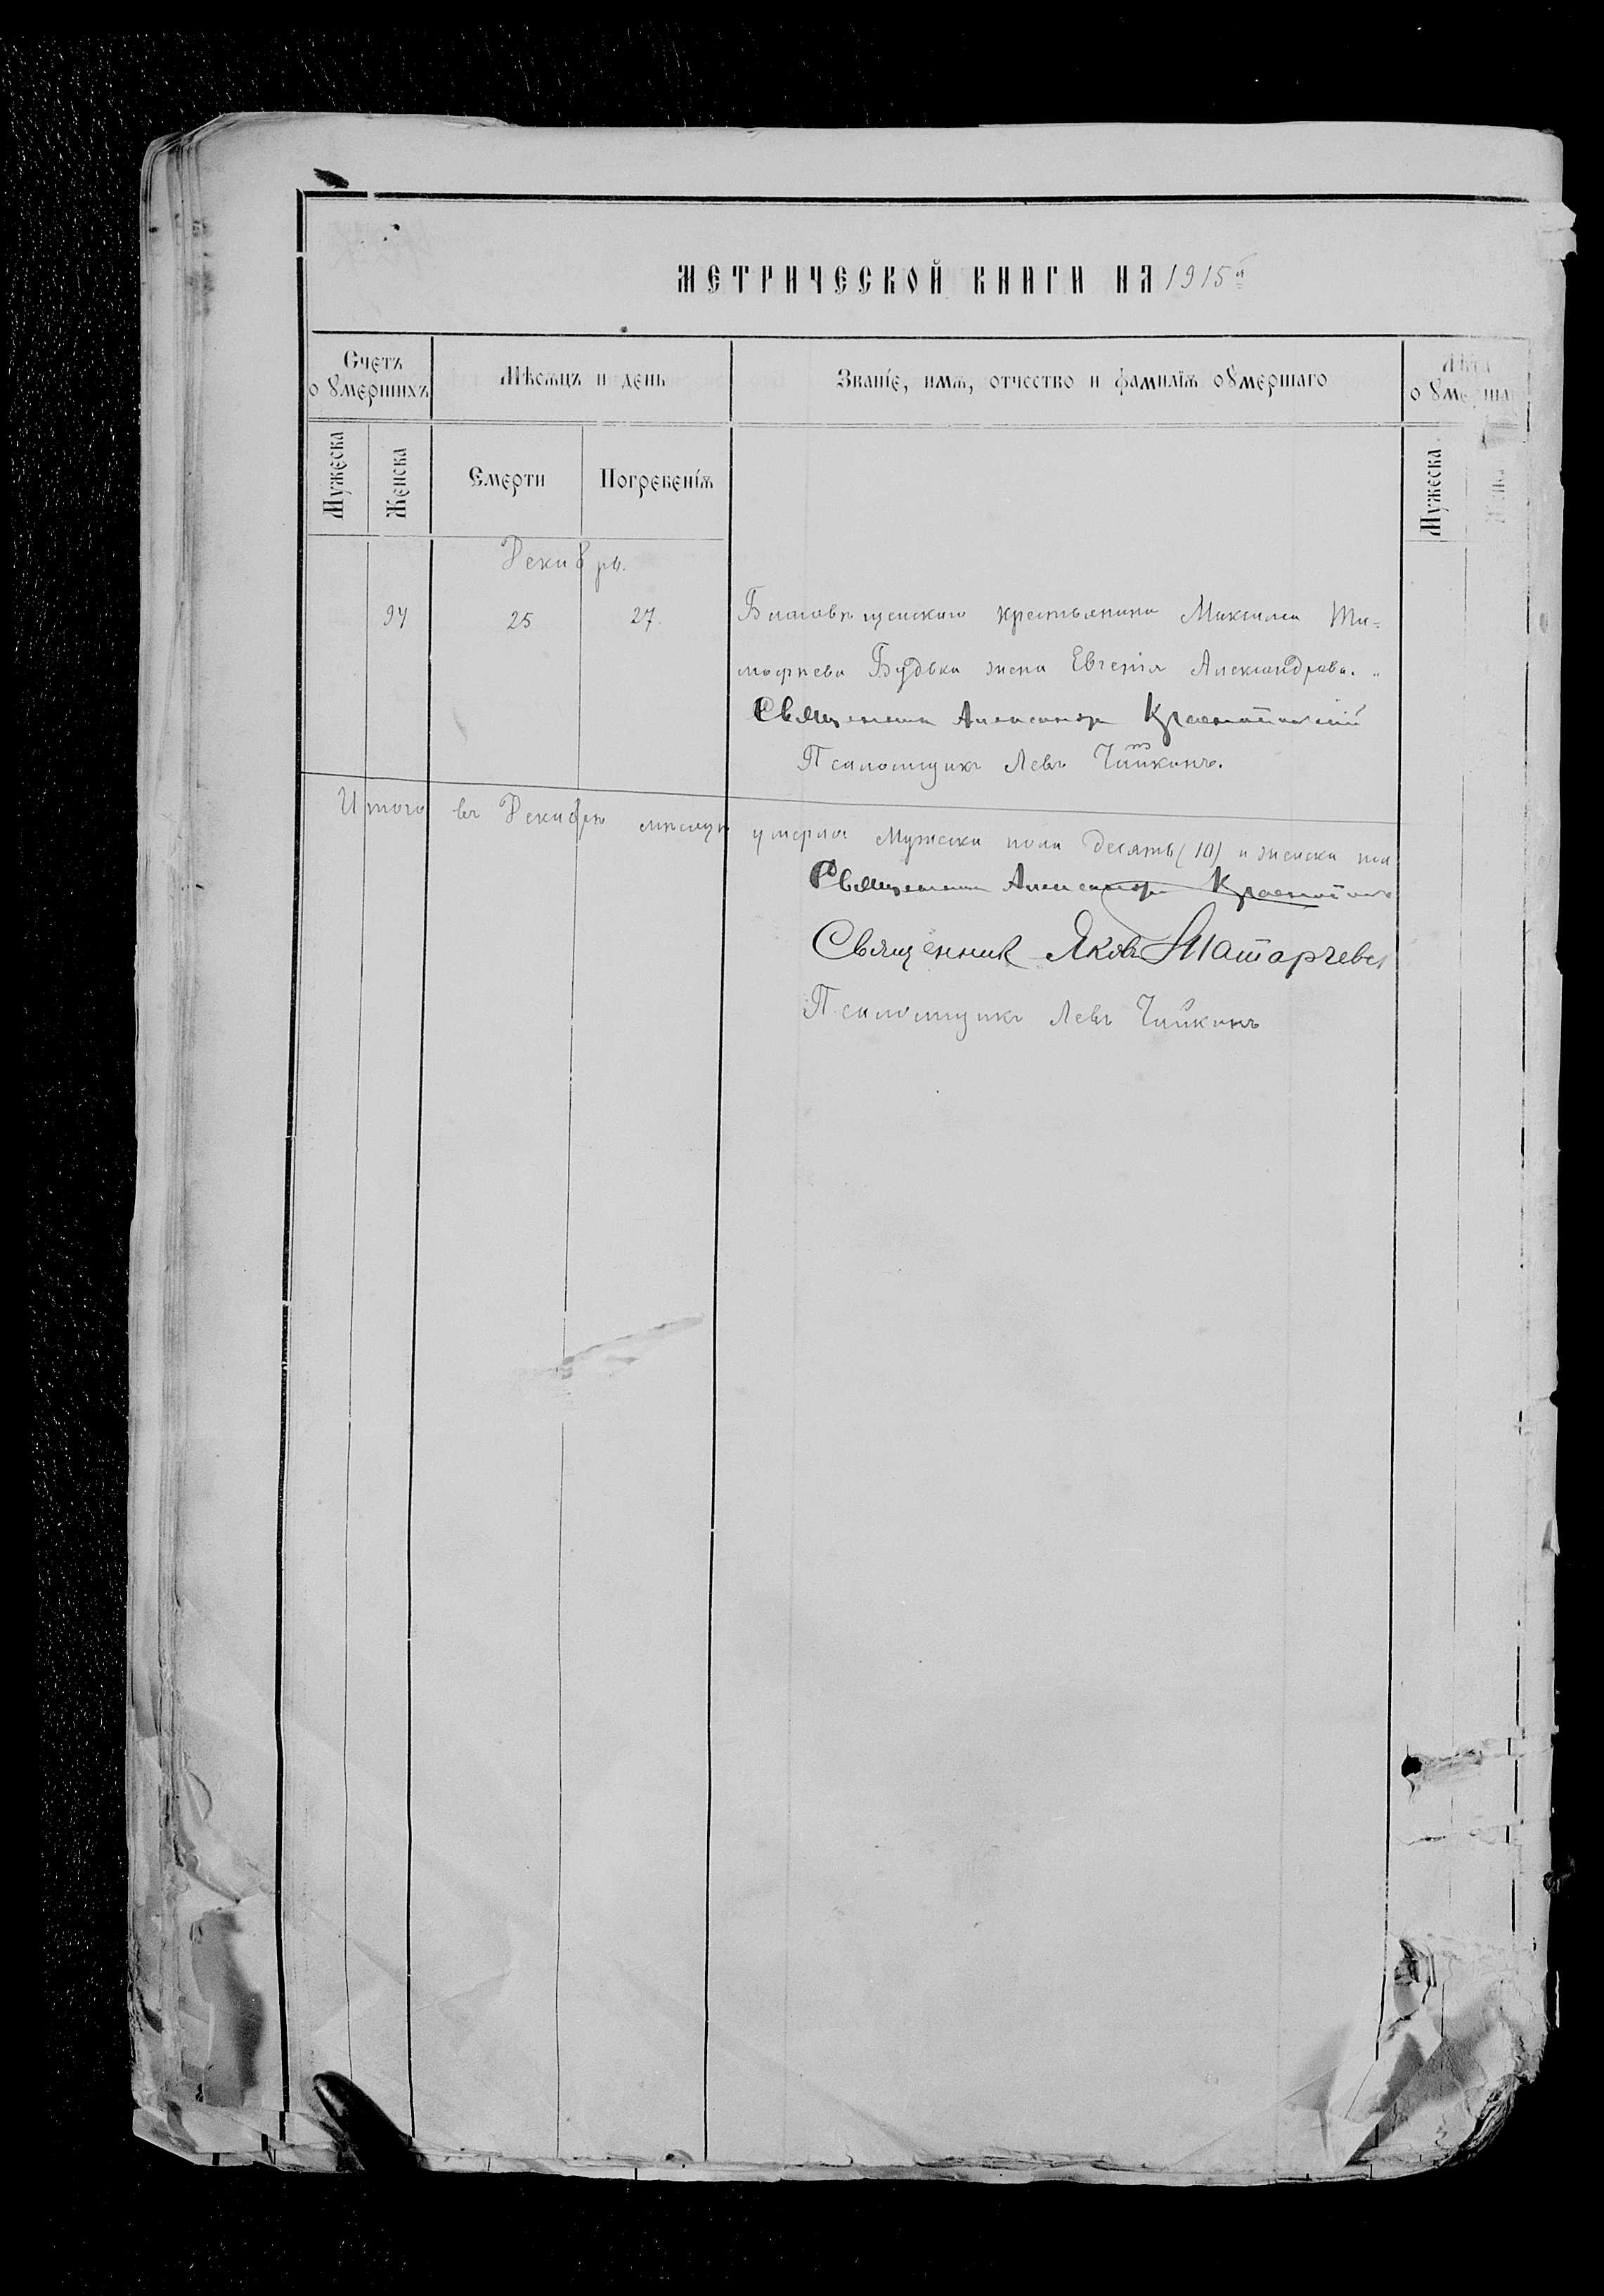 МЕТРИЧЕСКОЙ КНИГИ НА 1915 й
Счетъ оумершихъ
Мѣсяцъ и день
Званіе, имя, отчество и фамилія оумершаго
Лѣта оумершаго
Мужеска
Женска
Смерти
Погребенія
Мужеска
Декабрь.
94 25 27. Благовѣщенскаго крестьянина Максима Ти-
мофѣева Будька жена Евгенія Александрова.
Священникъ Александръ
Псаломщикъ Левъ Чайкинъ.
Итого въ Декабрѣ мѣсяцѣ умерло: мужеска пола десять (10) и женска пол
Священникъ Александръ
Священник Яковъ Матарчевъ
Псаломщикъ Левъ Чайкинъ